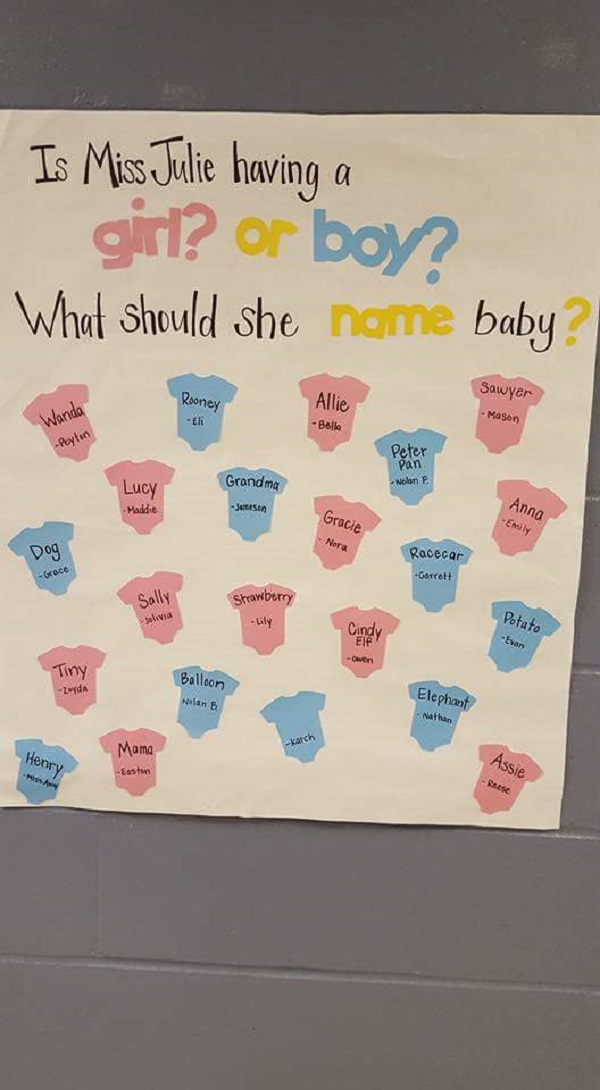 Is Miss Julie having a
girl? or boy?
What should she name baby?
Wanda
-Peyton
Rooney
-Eli
Allie
-Bella
Sawyer
-Mason
Peter
Pan
-Nolan F.
Lucy
-Maddie
Grandma
-Jameson
Gracie
-Nora
Anna
-Emily
Dog
-Grace
Racecar
-Garrett
Sally
Strawberry
-Lily
Cindy
Elf
-Owen
Potato
-Evan
Tiny
-Zayda
Balloon
Nolan B.
-Karch
Elephant
-Nathan
Henry
-Miss
Mama
-Easton
Assie
-Reese